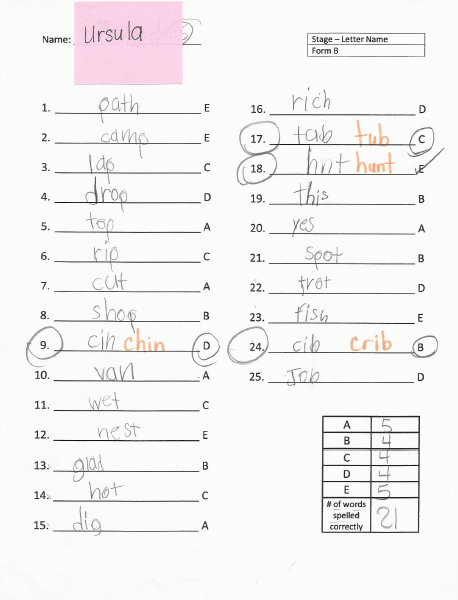 Name: Ursula
Stage – Letter Name
Form B
1. path E
2. camp E
3. lap C
4. drop D
5. top A
6. rip C
7. cut A
8. shop B
9. cih chin D
10. van A
11. wet C
12. nest E
13. glad B
14. hot C
15. dig A
16. rich D
17. tab tub C
18. hnt hunt E
19. this B
20. yes A
21. spot B
22. trot D
23. fish E
24. cib crib B
25. Job D
A 5
B 4
C 4
D 4
E 5
# of words
spelled
correctly 21